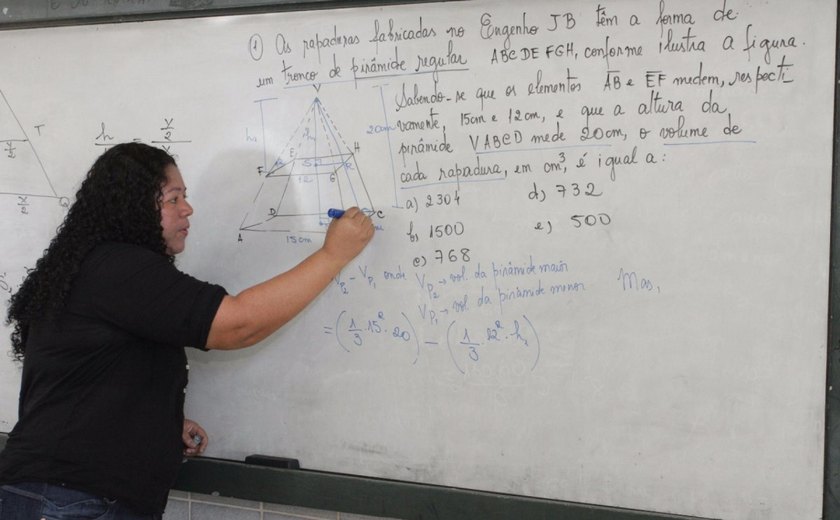 ① As rapaduras fabricadas no Engenho JB têm a forma de
um tronco de pirâmide regular ABCDEFGH, conforme ilustra a figura.
Sabendo-se que os elementos AB e EF medem, respecti-
vamente, 15cm e 12cm, e que a altura da
pirâmide VABCD mede 20cm, o volume de
cada rapadura, em cm³, é igual a:
a) 2304
d) 732
b) 1500
e) 500
c) 768
V
h
20cm
E
H
F
G
12
D
C
A
15cm
T
Q
h
y/2
x/2
Vp₂ - Vp₁ onde Vp₂ → vol. da pirâmide maior
Vp₁ → vol. da pirâmide menor
Mas,
= (1/3 · 15² · 20) - (1/3 · 12² · h₁)